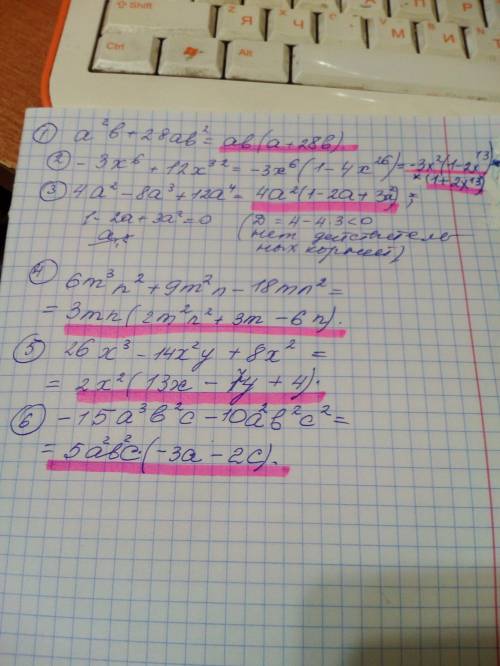 Shift
Ctrl
Alt
Я
Ч
С
М
И
① a²b + 28ab² = ab(a+28b)
② -3x⁶ + 12x³² = -3x⁶(1-4x²⁶) = -3x⁶(1-2x¹³)×
×(1+2x¹³)
③ 4a² - 8a³ + 12a⁴ = 4a²(1-2a+3a²);
1-2a+3a²=0 (D = 4-4·3<0
нет действитель-
ных корней)
④ 6m³n² + 9m²n - 18mn² =
= 3mn(2m²n² + 3m - 6n).
⑤ 26x³ - 14x²y + 8x² =
= 2x²(13x - 7y + 4).
⑥ -15a³b²c - 10a²b²c² =
= 5a²b²c(-3a - 2c).